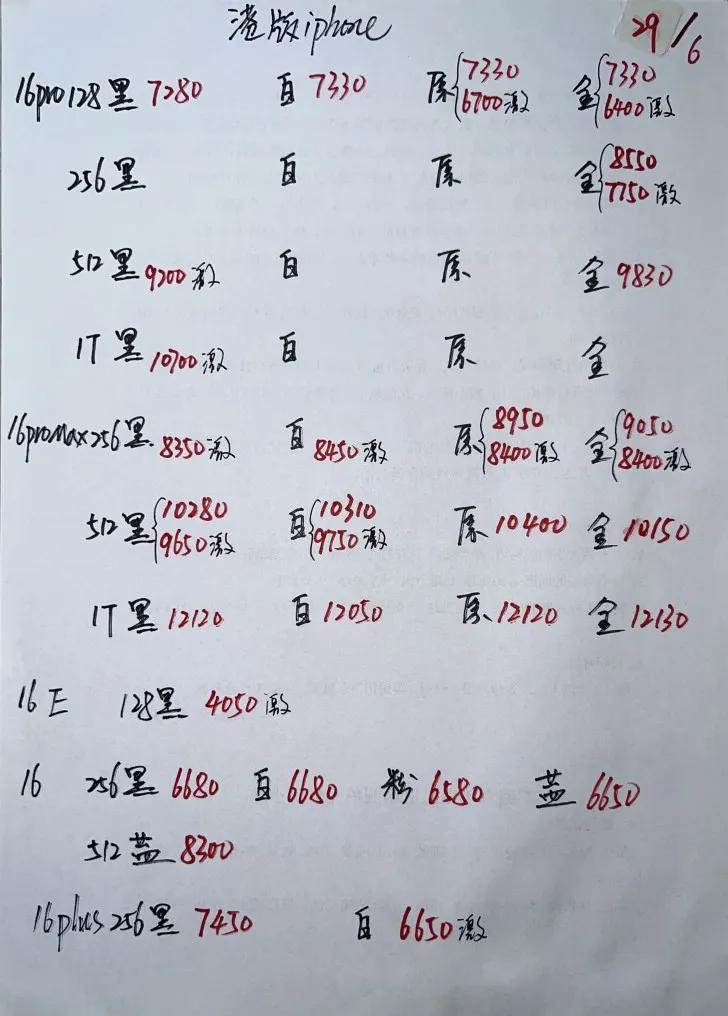 港版iphone 29/6
16pro128黑 7280 白 7330 原{7330 6700激 金{7330 6400激
256黑 白 原 金{8550 7750激
512黑 9200激 白 原 金 9830
1T 黑 10700激 白 原 金
16promax256黑 8350激 白 8450激 原{8950 8400激 金{9050 8400激
512黑{10280 9650激 白{10310 9750激 原 10400 金 10150
1T 黑 12120 白 12050 原 12120 金 12130
16E 128黑 4050激
16 256黑 6680 白 6680 粉 6580 蓝 6650
512蓝 8300
16plus256黑 7450 白 6650激